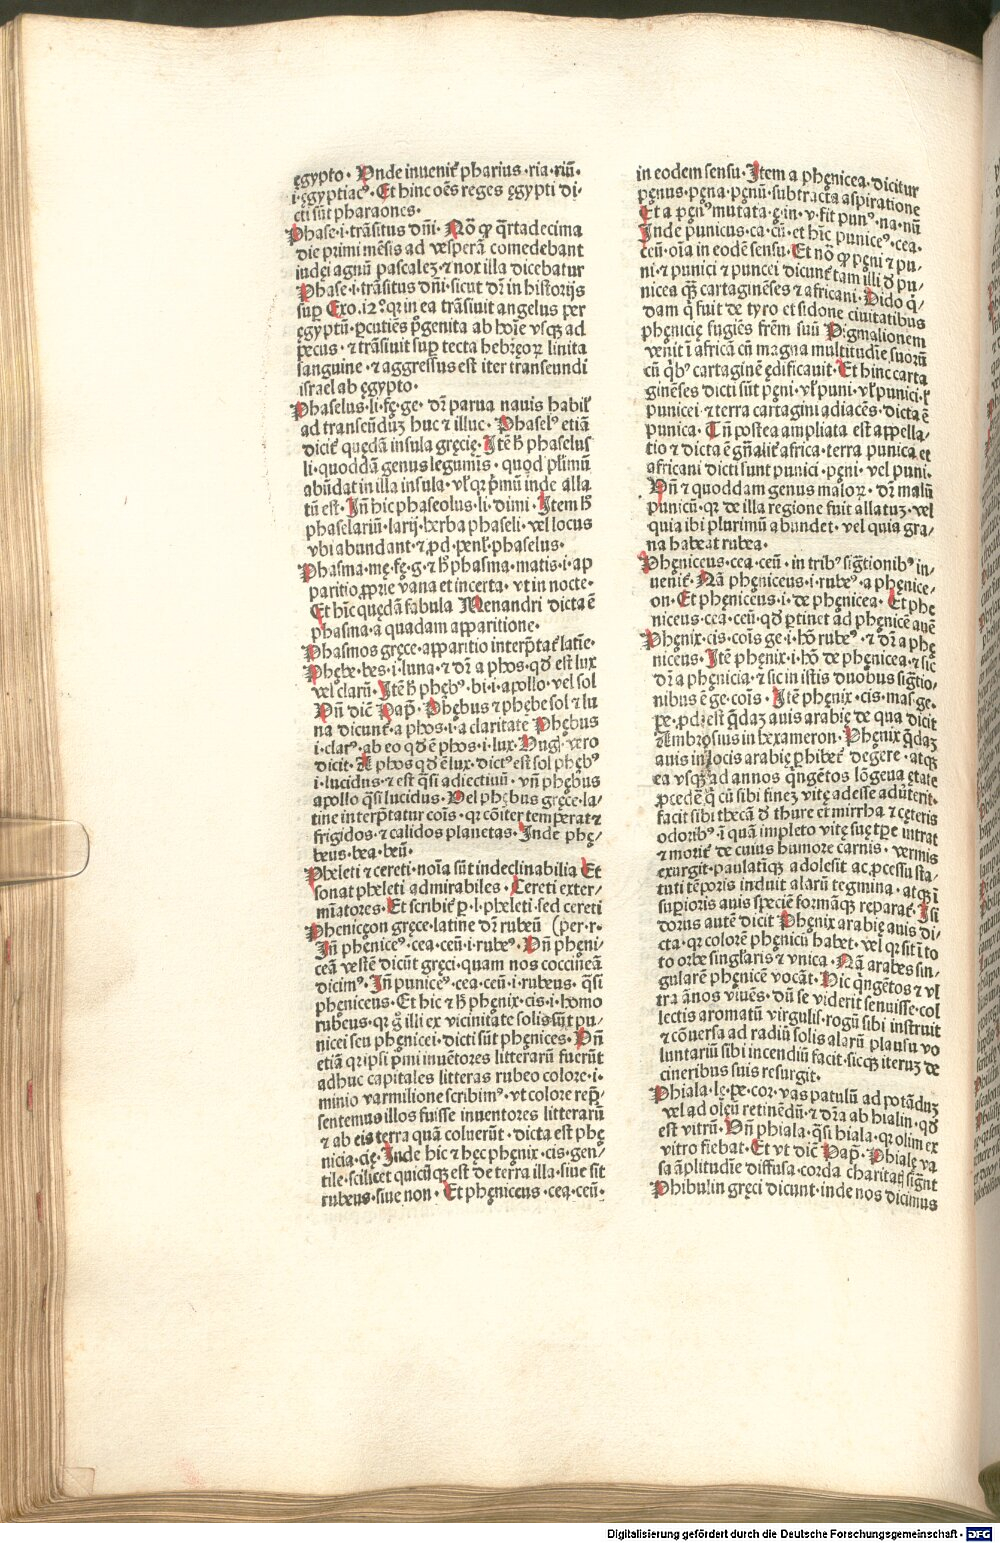 ęgypto · Vnde inuenit᷑ pharius ·ria·riū·
i·ęgyptiacꝰ· Et hinc oēs reges ęgypti di
cti sūt pharaones·
Phase·i·trāsitus dn̄i· Nō ꝙ qrtadecima
die primi mēsis ad vesperā comedebant
iudęi agnū pascalez·⁊ nox illa dicebatur
Phase·i·trāsitus dn̄i·sicut dr̄ in historijs
suꝑ Exo.12·qr in ea trāsiuit angelus per
ęgyptū·ꝑcutiēs pͥgenita ab hoīe vsqꝫ ad
pecus·⁊ trāsiuit suꝑ tecta hebręoꝝ linita
sanguine·⁊ aggressus est iter transeundi
israel ab ęgypto·
Phaselus·li·fę·ge· dr̄ parua nauis habil̓
ad transeūdūz huc ⁊ illuc· Phaselꝰ etiā
dicit᷑ quędā insula gręcię· Itē h̓ phaselus
li·quoddā genus legumis· quod pl̓imū
abūdat in illa insula·vl̓ qr pͥmū inde alla
tū est·Jn̄ hic phaseolus·li·dimi· Item h̓
phaselariū·larij·herba phaseli·vel locus
vbi abundant·⁊ ꝓd·penl̓·phaselus·
Phasma·mę·fę·g·⁊ h̓ phasma·matis·i·ap
paritio ꝓprie vana et incerta·vt in nocte·
Et hīc quędā fabula Menandri dicta ē
phasma·a quadam apparitione·
Phasmos gręce·apparitio interp̄tat᷑ latīe·
Phębe·bes·i·luna·⁊ dr̄ a phos·qd̓ est lux
vel clarū·Itē h̓ phębꝰ·bi·i·apollo·vel sol
Vn̄ dic̄ Pap̄· Phębus ⁊ phębe sol ⁊ lu
na dicunt᷑·a phos·i·a claritate Phębus
i·clarꝰ·ab eo qd̓ ē phos·i·lux·Hug· vero
dicit· A phos qd̓ ē lux·dictꝰ est sol phębꝰ
i·lucidus·⁊ est qͣsi adiectiuū· vn̄ phębus
apollo qͣsi lucidus· Vel phębus gręce·la-
tine interp̄tatur coīs· qr cōiter temperat ⁊
frigidos·⁊ calidos planetas·Inde phę-
beus·bea·beū·
Pheleti ⁊ cereti·noīa sūt indeclinabilia Et
sonat pheleti admirabiles· Cereti exter-
mīatores· Et scribit᷑ ꝑ·l·pheleti·sed cereti
Phenicęon gręce·latine dr̄ rubeū (per·r·
Jn̄ phenicꝰ·cea·ceū·i·rubeꝰ· Vn̄ phęni-
ceā vestē dicūt gręci·quam nos coccineā
dicimꝰ· Jn̄ punicꝰ·cea·ceū·i·rubeus· qͣsi
phęniceus·Et hic ⁊ h̓ phęnix·cis·i·homo
rubeus·qr g̓ illi ex vicinitate solis sūt pu-
nicei seu phęnicei·dicti sūt phęnices· Vn̄
etiā qr ipsi pͥmi inuētores litterarū fuerūt
adhuc capitales litteras rubeo colore·i·
minio varmilione scribimꝰ·vt colore rep̄-
sentemus illos fuisse inuentores litterarū
⁊ ab eis terra quā coluerūt·dicta est phę
nicia·cię· Inde hic ⁊ hęc phęnix·cis·gen-
tile·scilicet quicūqꝫ est de terra illa·siue sit
rubeus·siue non· Et phęniceus·cea·ceū·
in eodem sensu· Item a phęnicea·dicitur
pęnus·pęna·pęnū·subtracta aspiratione
Et a pęnꝰ mutata·ę·in·v·fit punꝰ·na·nū
Inde punicus·ca·cū·et hīc punicꝰ·cea·
ceū·oīa in eodē sensu· Et nō ꝙ pęni ⁊ pu-
ni·⁊ punici ⁊ puncei dicunt᷑ tam illi d̓ pu-
nicea qꝫ cartaginēses ⁊ africani· Dido q̄-
dam q̄ fuit de tyro et sidone ciuitatibus
phęnicię fugiēs frēm suū Pigmalionem
venit ī africā cū magna multitudīe suorū
cū qͥbꝰ cartaginē ędificauit· Et hinc carta
ginēses dicti sūt pęni·vl̓ puni·vl̓ punici·l̓
punicei ⁊ terra cartagini adiacēs·dicta ē
punica· Tn̄ postea ampliata est appella-
tio ⁊ dicta ē gn̄alit᷑ africa·terra punica et
africani dicti sunt punici·pęni·vel puni·
Vn̄ ⁊ quoddam genus maloꝝ· dr̄ malū
punicū·qr de illa regione fuit allatuz·vel
quia ibi plurimū abundet·vel quia gra-
na habeat rubea·
Phęniceus·cea·ceū·in tribꝰ sig̓tionibꝰ in-
uenit᷑· Nā phęniceus·i·rubeꝰ·a phęnice-
on· Et phęniceus·i·de phęnicea· Et phę
niceus·cea·ceū·qd̓ ꝑtinet ad phęnicē auē
Phęnix·cis·coīs ge·i·hō rubeꝰ·⁊ dr̄ a phę
niceus· Itē phęnix·i·hō de phęnicea·⁊ sic
dr̄ a phęnicia·⁊ sic in istis duobus sig̓tio-
nibus ē ge·coīs· Itē phęnix·cis·mas·ge·
pe·ꝓd·est qͣdaz auis arabię de qua dicit
Ambrosius in hexameron· Phęnix qͣdaz
auis in locis arabię ꝑhibet᷑ degere·atqꝫ
ea vsqꝫ ad annos qͥngētos lōgeua ętate
ꝓcedē· q̓ cū sibi finez vitę adesse aduterit·
facit sibi thecā d̓ thure et mirrha ⁊ cęteris
odoribꝰ·ī quā impleto vitę suę tꝑe intrat
⁊ morit᷑ de cuius humore carnis·vermis
exurgit·paulatīqꝫ adolesit ac ꝓcessu sta-
tuti tēporis induit alarū tegmina·atqꝫ ī
suꝑioris auis speciē formāqꝫ reparat᷑· Isi
dorus autē dicit Phęnix arabię auis di-
cta·qr colorē phęnicū habet·vel qr sit ī to
to orbe singl̓aris ⁊ vnica· Nā arabes sin-
gularē phęnicē vocāt· Hic qͥngētos ⁊ vl̓
tra ānos viuēs·dū se viderit senuisse·col
lectis aromatū virgulis·rogū sibi instruit
⁊ cōuersa ad radiū solis alarū plausu vo
luntariū sibi incendiū facit·sicqꝫ iteruz de
cineribus suis resurgit·
Phiala·lę·pe·cor·vas patulū ad potādūz
vel ad olęū retinēdū·⁊ dr̄ a ab hialin·qd̓
est vitrū· Vn̄ phiala·qͣsi hiala·qr olim ex
vitro fiebat· Et vt dic̄ Pap̄· Phialę va
sa āplitudīe diffusa·corda charitatꝭ sig̓nt
Phibulin gręci dicunt·inde nos dicimus
Digitalisierung gefördert durch die Deutsche Forschungsgemeinschaft - DFG